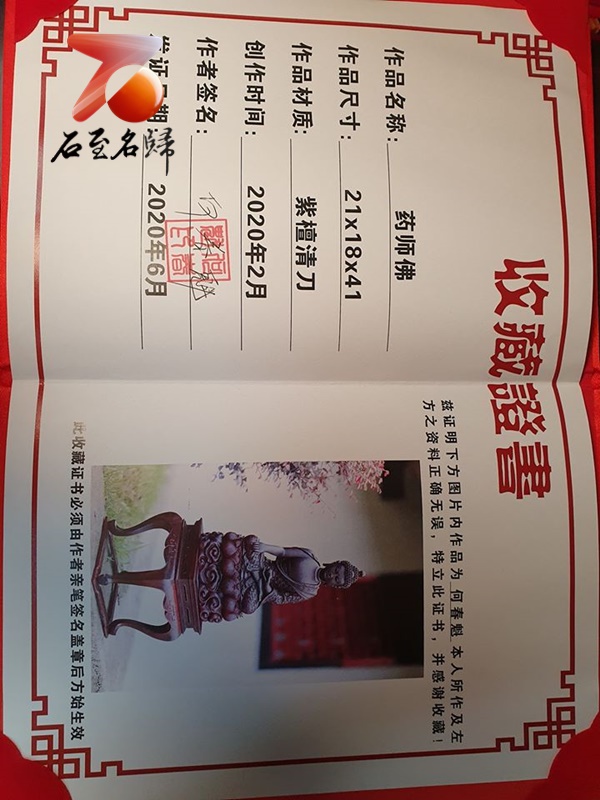 收藏證書
作品名称：药师佛
作品尺寸：21x18x41
作品材质：紫檀清刀
创作时间：2020年2月
作者签名：
发证日期 2020年6月
兹证明下方图片内作品为 何春魁 本人所作及左
方之资料正确无误，特立此证书，并感谢收藏！
此收藏证书必须由作者亲笔签名盖章后方始生效
石至名歸